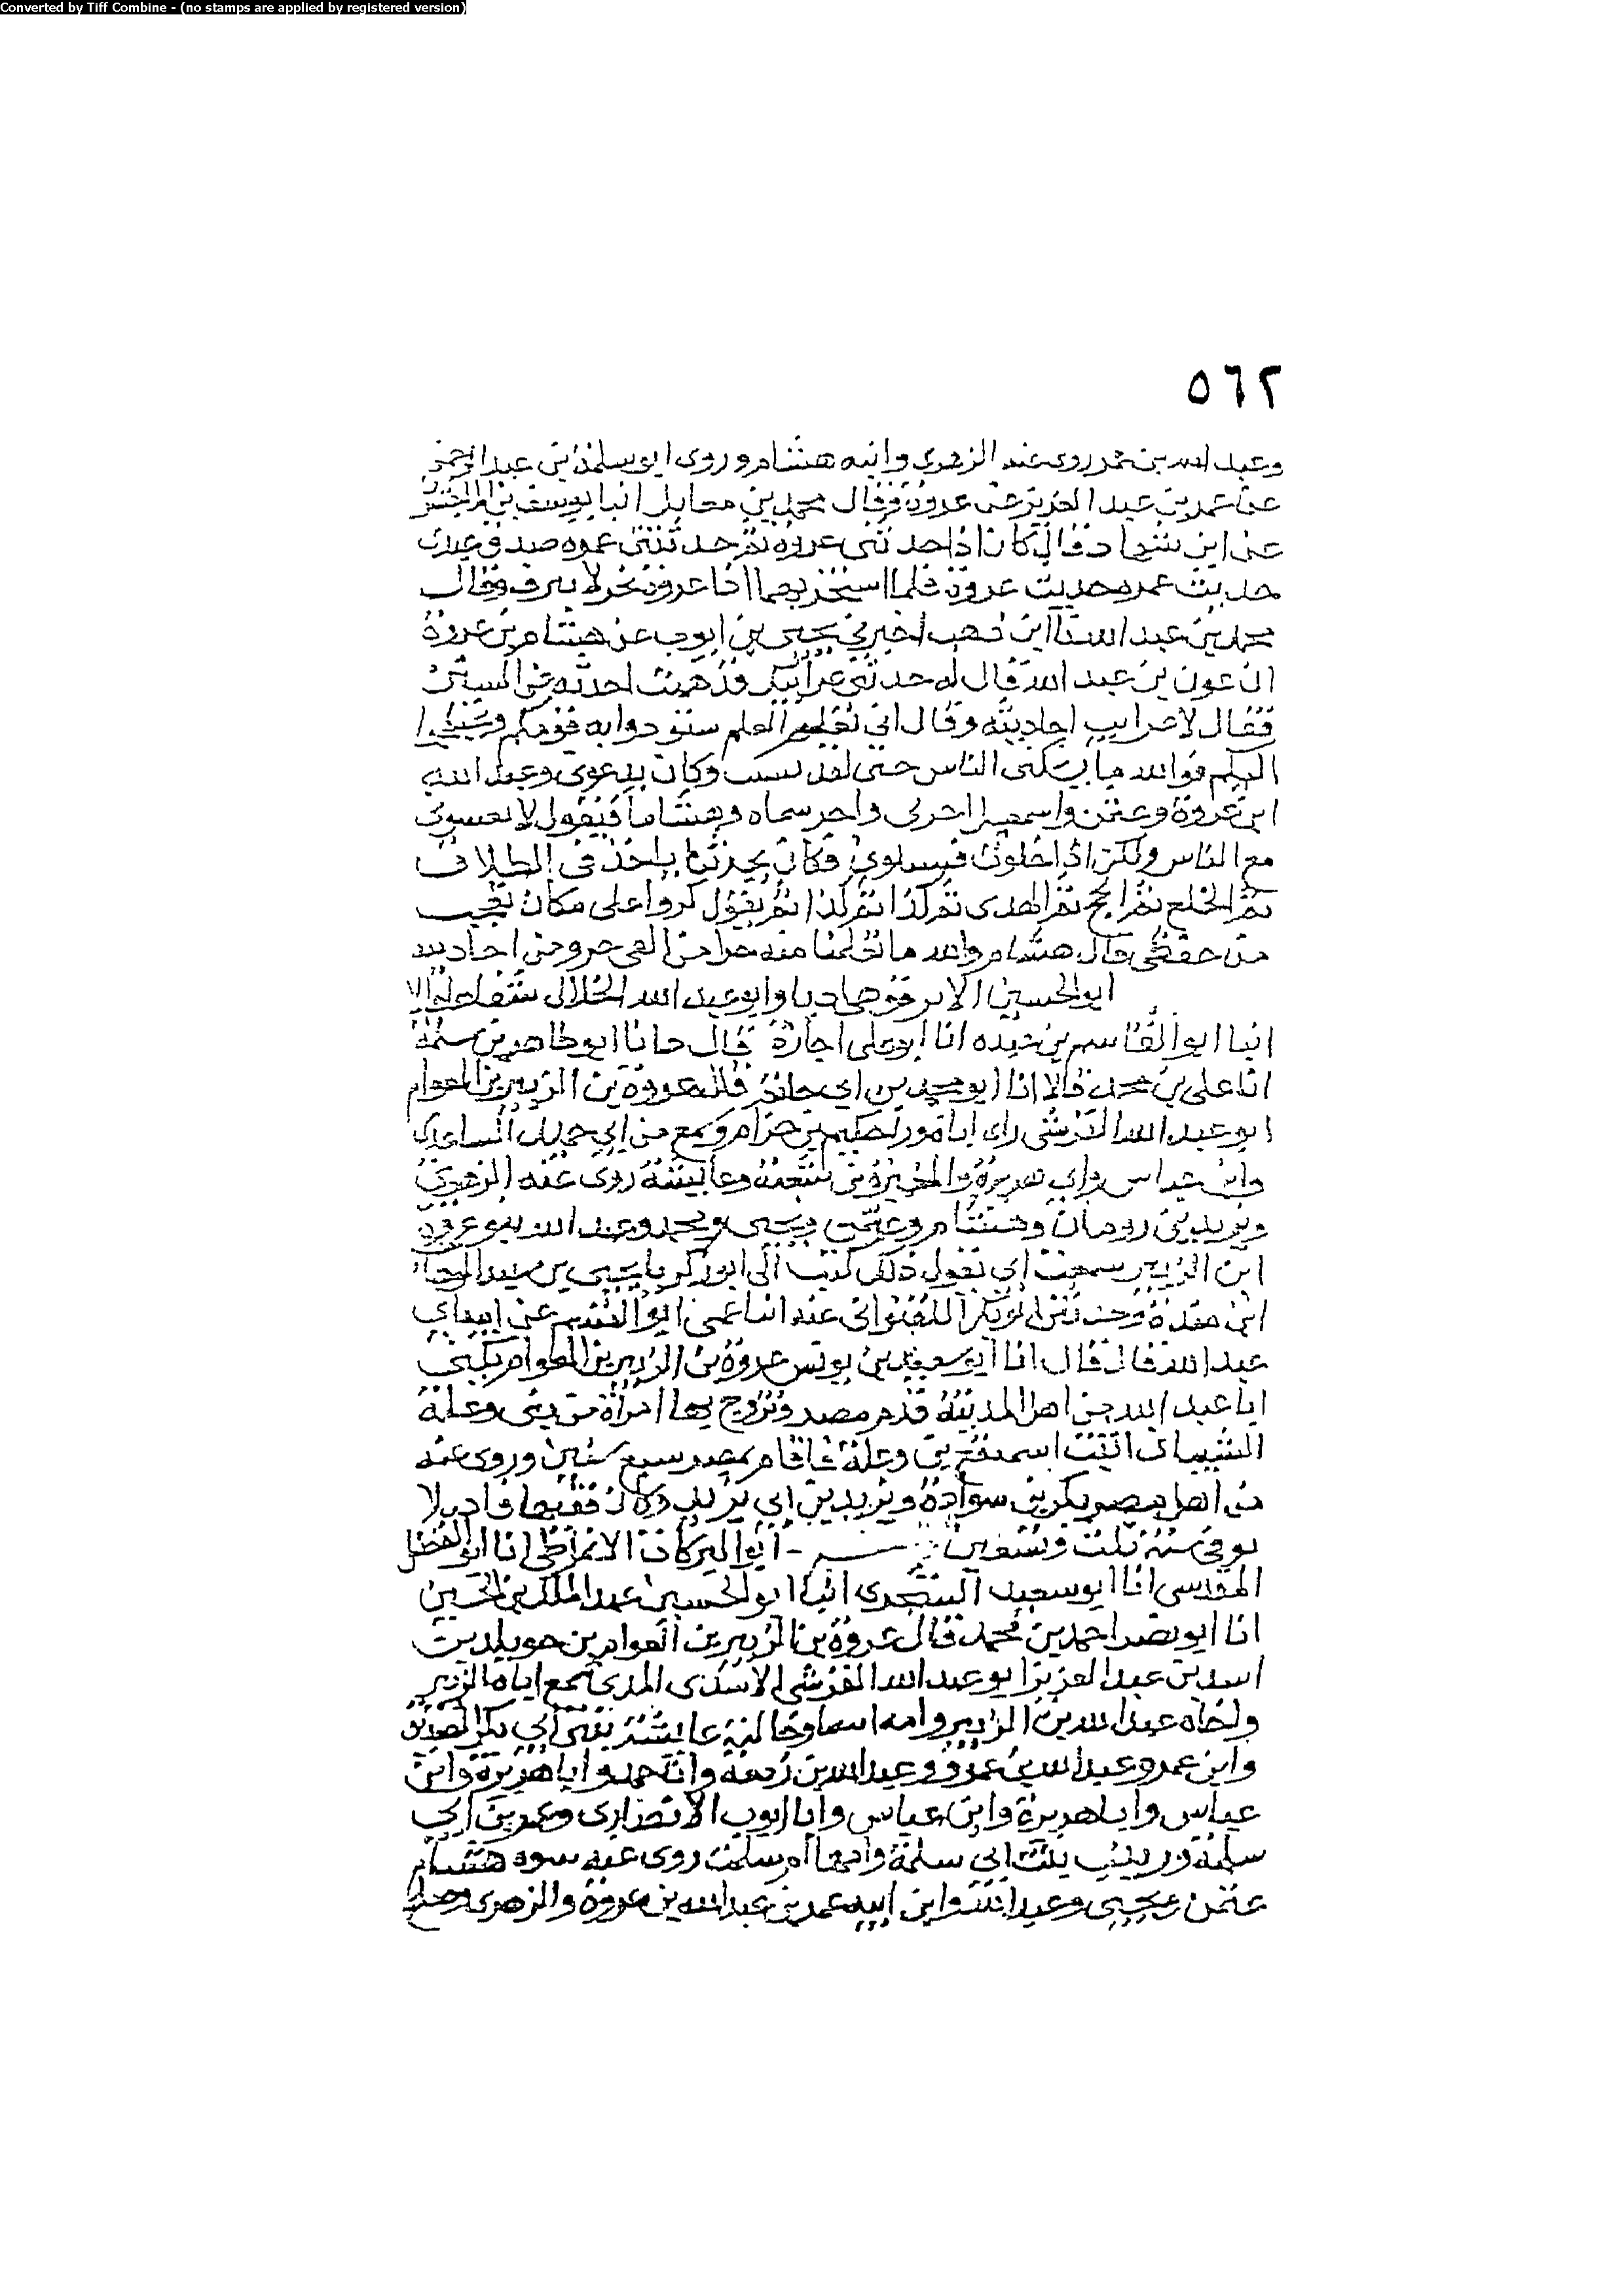 Converted by Tiff Combine - (no stamps are applied by registered version)
٥٦٢
وعبد الله بن عمر روى عنه الزهري وابنه هشام وروى ابو سلمة بن عبد الرحمن
عن عمر بن عبد العزيز عن عروة وقال محمد بن مقاتل انبا يوسف بن الماجشون
عن ابن شهاب قال كان اذا حدثني عروة ثم حدثتني عمرة صدق عندي
حديث عمرة حديث عروة فلما استخبرتهما اذا عروة بحر لا ينزف وقال
محمد بن عبد الله ابن وهب اخبرني يحيى بن ايوب عن هشام بن عروة
ان عون بن عبد الله قال له حدثني عن ابيك فذهبت احدثه عن السنن
فقال لا غرايب احاديثه وقال اني تعلموا العلم ستسودوا به قومكم
اليكم فوالله ما يسلني الناس حتى لقد نسيت وكان يدعوني وعبد الله
ابن عروة وعثمن واسمعيل اخوتي واخر سماه وهشاما فيقول لا تغشوني
مع الناس ولكن اذا خلوت فسلوني فكان يحدثنا ياخذ في الطلاق
ثم الخلع ثم الحج ثم الهدى ثم كذا ثم كذا ثم يقول كروا علي فكان يعجب
من حفظي قال هشام والله ما تعلمنا منه جزا من الفي جزو من احاديثه
ابو الحسين الابرقوهي اذنا وابو عبد الله الخلال شفاها قالا
انبا ابو القاسم بن منده انا ابو علي اجازة قال ح انا ابو طاهر بن سلمة
انا علي بن محمد قالا انا ابو محمد بن ابي حاتم قال عروة بن الزبير بن العوام
ابو عبد الله القرشي راى اباه وحكيم بن حزام وسمع من ابي حميد الساعدي
وابن عباس وابي هريرة والمغيرة بن شعبة وعايشة روى عنه الزهري
ويزيد بن رومان وهشام وعثمن ويحيى ومحمد وعبد الله بنو عروة
ابن الزبير سمعت ابي يقول ذلك كتب الى ابو زكريا يحيى بن عبد الوهاب
ابن منده وحدثني ابو بكر اللفتواني عنه انا عمي ابو القاسم عن ابيه ابي
عبد الله قال قال انا ابو سعيد بن يونس عروة بن الزبير بن العوام يكنى
ابا عبد الله من اهل المدينة قدم مصر وتزوج بها امراة من بني وعلة
الشيباني ابنت اسميفع بن وعلة فاقام بمصر سبع سنين وروى عنه
من اهل مصر بكر بن سوادة ويزيد بن ابي يزيد وكان فقيها فاضلا
توفي سنة ثلث وتسعين ابو البركات الانماطي انا ابو الفضل
المقدسي انا ابو سعيد السجزي انبا ابو الحسين عبد الملك بن الحسين
انا ابو نصر احمد بن محمد قال عروة بن الزبير بن العوام بن خويلد بن
اسد بن عبد العزيز ابو عبد الله القرشي الاسدي المدني سمع اباه الزبير
واخاه عبد الله بن الزبير وامه اسما وخالته عايشة بنتي ابي بكر الصديق
وابن عمر وعبد الله بن عمرو وعبد الله بن زمعة وابا حميد وابا هريرة وابن
عباس وابا هريرة وابن عباس وابا ايوب الانصاري وعمر بن ابي
سلمة وزينب بنت ابي سلمة وامها ام سلمة روى عنه بنوه هشام
عثمن ويحيى وعبد الله وابن ابيه عمر بن عبد الله بن عروة والزهري